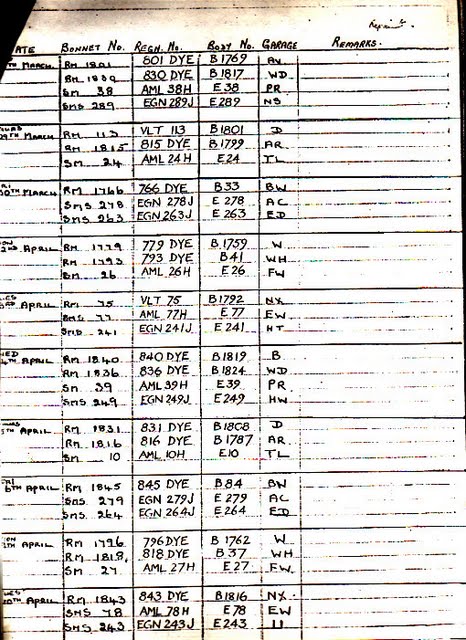 Repaints.
ATE BONNET NO. REGN. NO. BODY NO. GARAGE REMARKS.
TH MARCH RM 1801 801 DYE B1769 AV
RM 1830 830 DYE B1817 WD
SM 38 AML 38H E38 PR
SMS 289 EGN 289J E289 NS
29TH MARCH RM 113 VLT 113 B1801 D
RM 1815 815 DYE B1799 AR
SM 24 AML 24H E24 TL
30TH MARCH RM 1766 766 DYE B33 BW
SMS 278 EGN 278J E278 AC
SMS 263 EGN 263J E263 ED
2ND APRIL RM 1779 779 DYE B1759 W
RM 1793 793 DYE B41 WH
SM 26 AML 26H E26 FW
APRIL RM 75 VLT 75 B1792 NX
SMS 77 AML 77H E77 EW
SMD 241 EGN 241J E241 HT
ED
4TH APRIL RM 1840 840 DYE B1819 B
RM 1836 836 DYE B1824 WD
SM 39 AML 39H E39 PR
SMS 249 EGN 249J E249 HW
5TH APRIL RM 1831 831 DYE B1808 D
RM 1816 816 DYE B1787 AR
SM 10 AML 10H E10 TL
6TH APRIL RM 1845 845 DYE B84 BW
SMS 279 EGN 279J E279 AC
SMS 264 EGN 264J E264 ED
APRIL RM 1796 796 DYE B1762 W
RM 1818 818 DYE B37 WH
SM 27 AML 27H E27 FW
10TH APRIL RM 1843 843 DYE B1816 NX
SMS 78 AML 78H E78 EW
SMS 243 EGN 243J E243 U